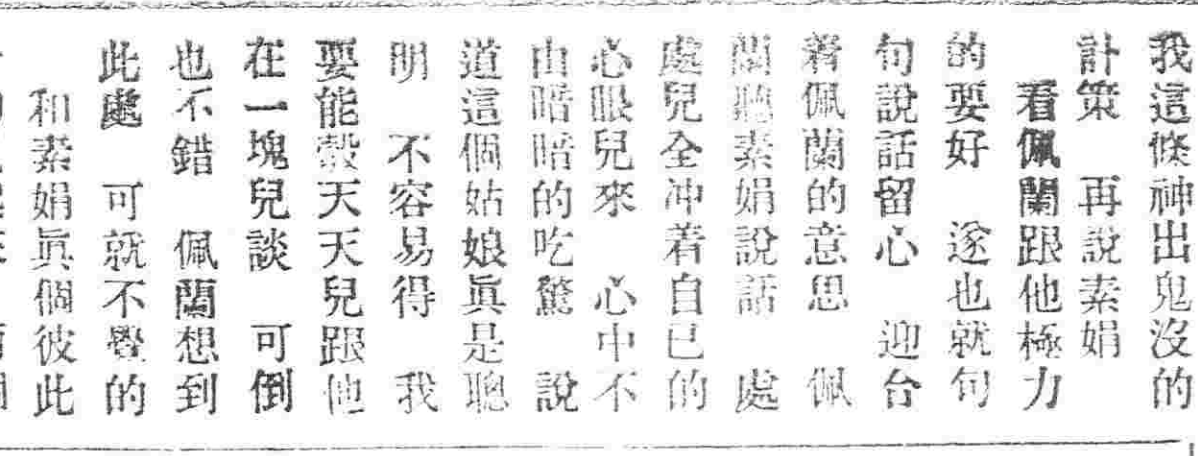 我這條神出鬼沒的
計策　再說素娟
看佩蘭跟他極力
的要好　遂也就句
句說話留心　迎台
着佩蘭的意思　佩
蘭聽素娟說話　處
處兒全冲着自己的
心眼兒來　心中不
由暗暗的吃驚　說
道這個姑娘眞是聰
明　不容易得　我
要能彀天天兒跟他
在一塊兒談　可倒
也不錯　佩蘭想到
此處　可就不覺的
和素娟眞個彼此